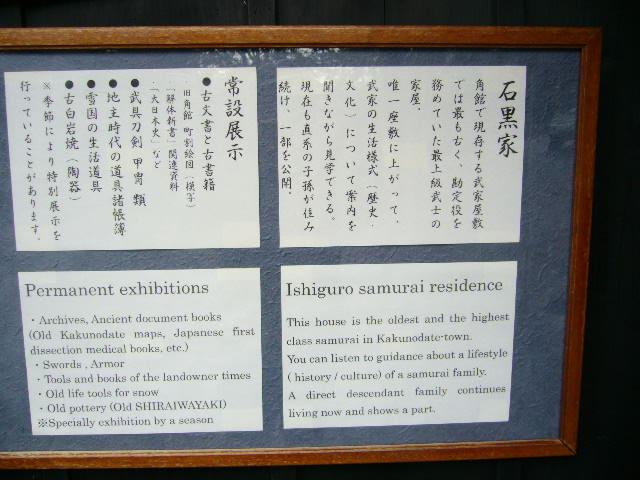 石黒家
角館で現存する武家屋敷
では最も古く、勘定役を
務めていた最上級武士の
家屋。
唯一座敷に上がって、
武家の生活様式(歴史・
文化)について案内を
聞きながら見学できる。
現在も直系の子孫が住み
続け、一部を公開。
常設展示
●古文書と古書籍
旧角館 町割絵図(模写)
「解体新書」関連資料
「大日本史」など
●武具刀剣 甲冑 類
●地主時代の道具諸帳簿
●雪国の生活道具
●古白岩焼(陶器)
※季節により特別展示を
行っていることがあります。
Permanent exhibitions
・Archives, Ancient document books
(Old Kakunodate maps, Japanese first
dissection medical books, etc.)
・Swords , Armor
・Tools and books of the landowner times
・Old life tools for snow
・Old pottery (Old SHIRAIWAYAKI)
※Specially exhibition by a season
Ishiguro samurai residence
This house is the oldest and the highest
class samurai in Kakunodate-town.
You can listen to guidance about a lifestyle
( history / culture) of a samurai family.
A direct descendant family continues
living now and shows a part.